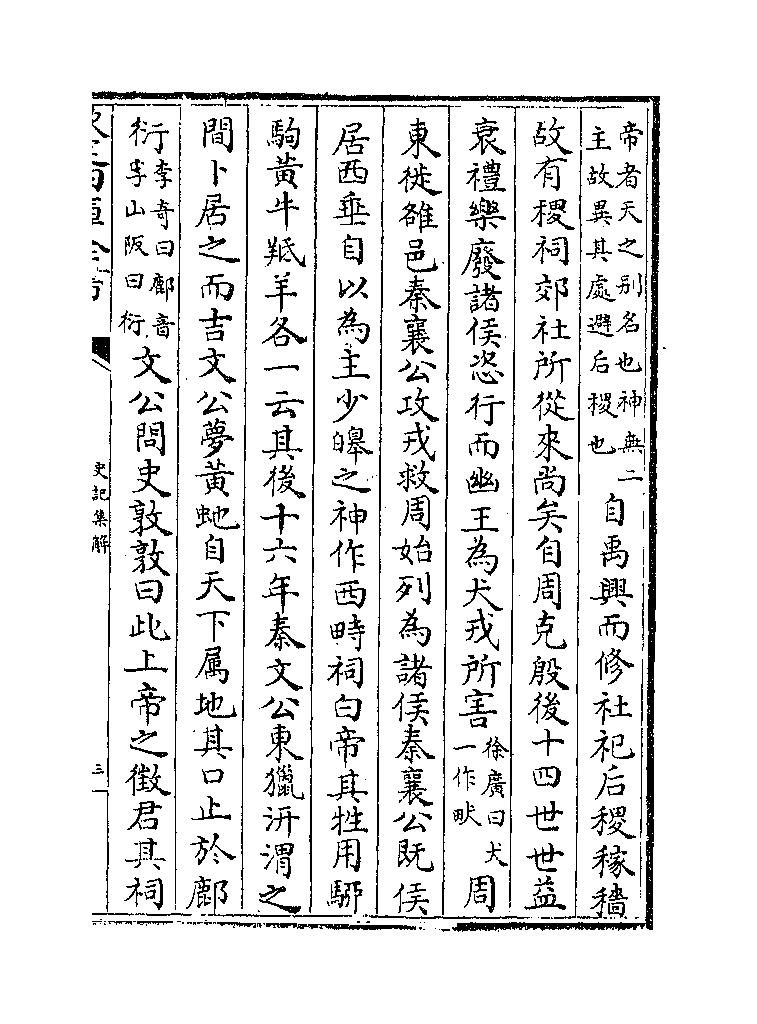 帝者天之别名也神無二
主故異其處避后稷也
自禹興而修社祀后稷稼穡
故有稷祠郊社所從來尚矣自周克殷後十四世世益
衰禮樂廢諸侯恣行而幽王為犬戎所害
徐廣曰犬
一作畎
周
東徙雒邑秦襄公攻戎救周始列為諸侯秦襄公既侯
居西垂自以為主少皞之神作西畤祠白帝其牲用駵
駒黄牛羝羊各一云其後十六年秦文公東獵汧渭之
間卜居之而吉文公夢黄虵自天下属地其口止於鄜
衍
李奇曰鄜音
孚山阪曰衍
文公問史敦敦曰此上帝之徵君其祠
史記集解
三